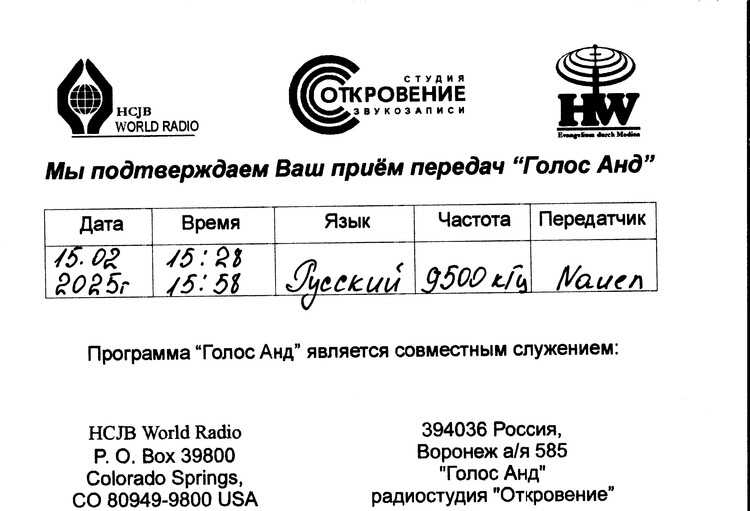 HCJB
WORLD RADIO
СТУДИЯ
ОТКРОВЕНИЕ
ЗВУКОЗАПИСИ
HW
Evangelium durch Medien
Мы подтверждаем Ваш приём передач “Голос Анд”
Дата Время Язык Частота Передатчик
15.02 15:28
2025г 15:58 Русский 9500 кГц Nauen
Программа “Голос Анд” является совместным служением:
HCJB World Radio
P. O. Box 39800
Colorado Springs,
CO 80949-9800 USA
394036 Россия,
Воронеж а/я 585
"Голос Анд"
радиостудия "Откровение”